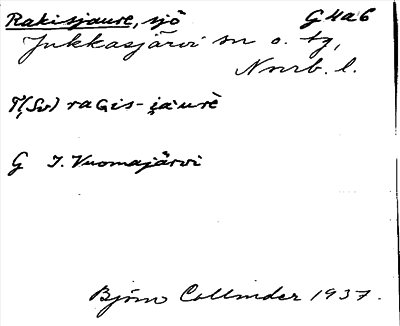 Rakisjaure, sjö G4a6
Jukkasjärvi sn o. tg,
Nnrb. l.
(Sv) ragis-
G I. Vuomajärvi
Björn Collinder 1937.